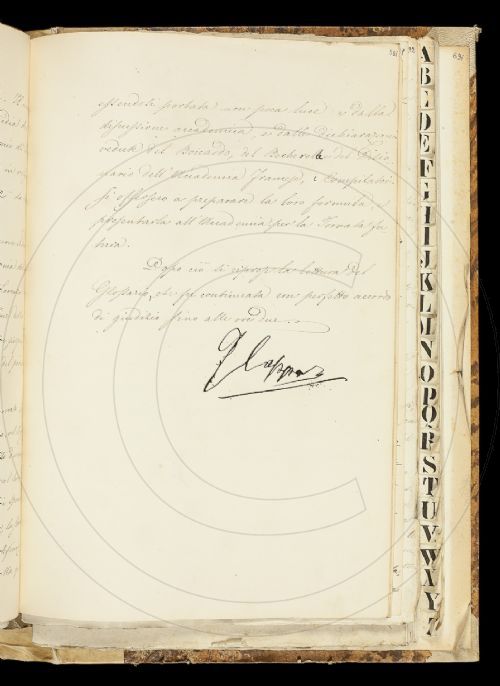 essendole portata non poca luce e dalla
discussione accademica, e dalle dichiarazioni
vedute del Boccardo, del Bescherelle e del Dizio-
nario dell'Accademia Francese, i Compilatori
si offersero a preparare la loro formula, e
presentarla all'Accademia per la Tornata fu-
tura.
Dopo ciò si riprese la lettura del
Glossario, che fu continuata con perfetto accordo
di giudizio fino alle ore due.
G Capponi
A
B
C
D
E
F
G
H
I
J
K
L
M
N
O
P
Q
R
S
T
U
V
W
X
Y
Z